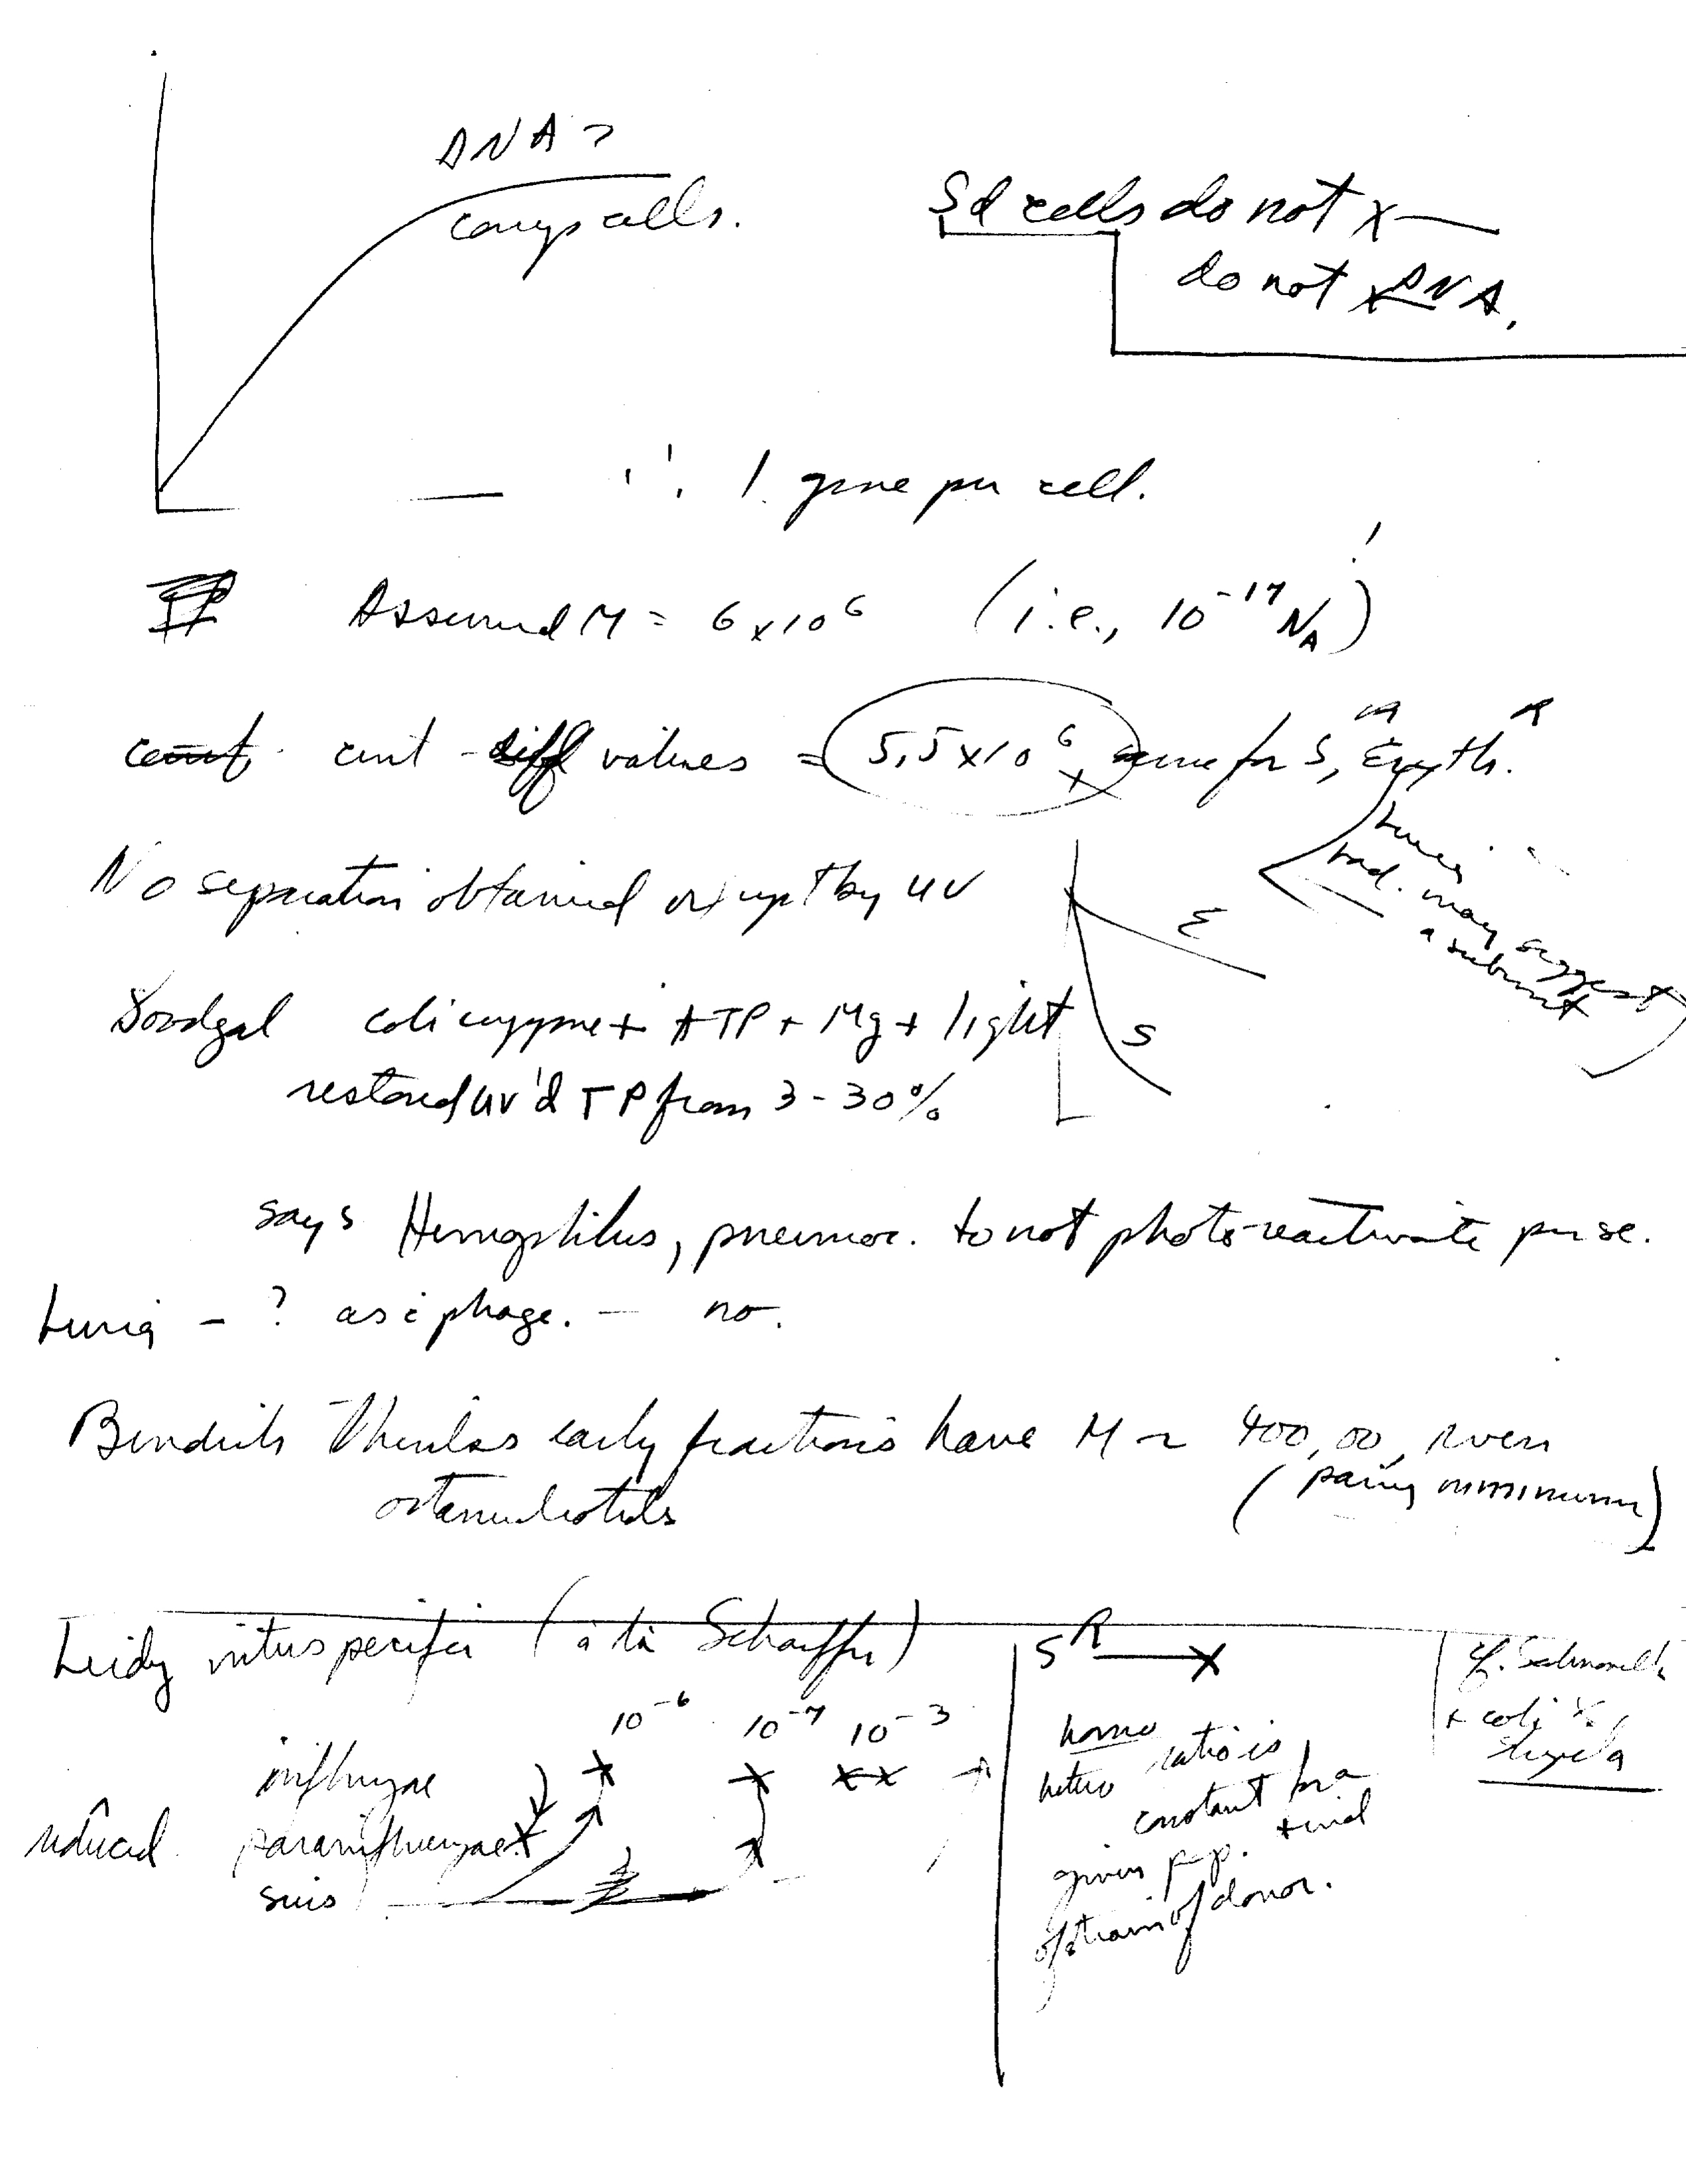 DNA ?
cells.
Sd cells do not x—
do not x DNA.
∴ 1 gene per cell.
II Assumed M = 6 x 10^6 (i.e., 10^-17 N_A)
cent - diff values = 5.5 x 10^6 same for S, Eryth. R
No separation obtained except by UV
E
S
Luria
rad. may suggest
a subunit
Goodgal coli enzyme + ATP + Mg + light
restored UV'd TP from 3 - 30%
says Hemophilus, pneumoc. do not photo-reactivate per se.
Luria - ? as c phage. — no.
Bendich thinks early fractions have M ~ 400,00, even
(pairing minimum)
octanucleotids
Leidy intraspecific (à la Schaeffer)
S^R —x
10^-6 10^-7 10^-3
influenzae
parainfluenzae
suis
homo
hetero ratio is
constant for a
given pop. + ind
of strain of donor.
cf. Salmonella
+ coli x